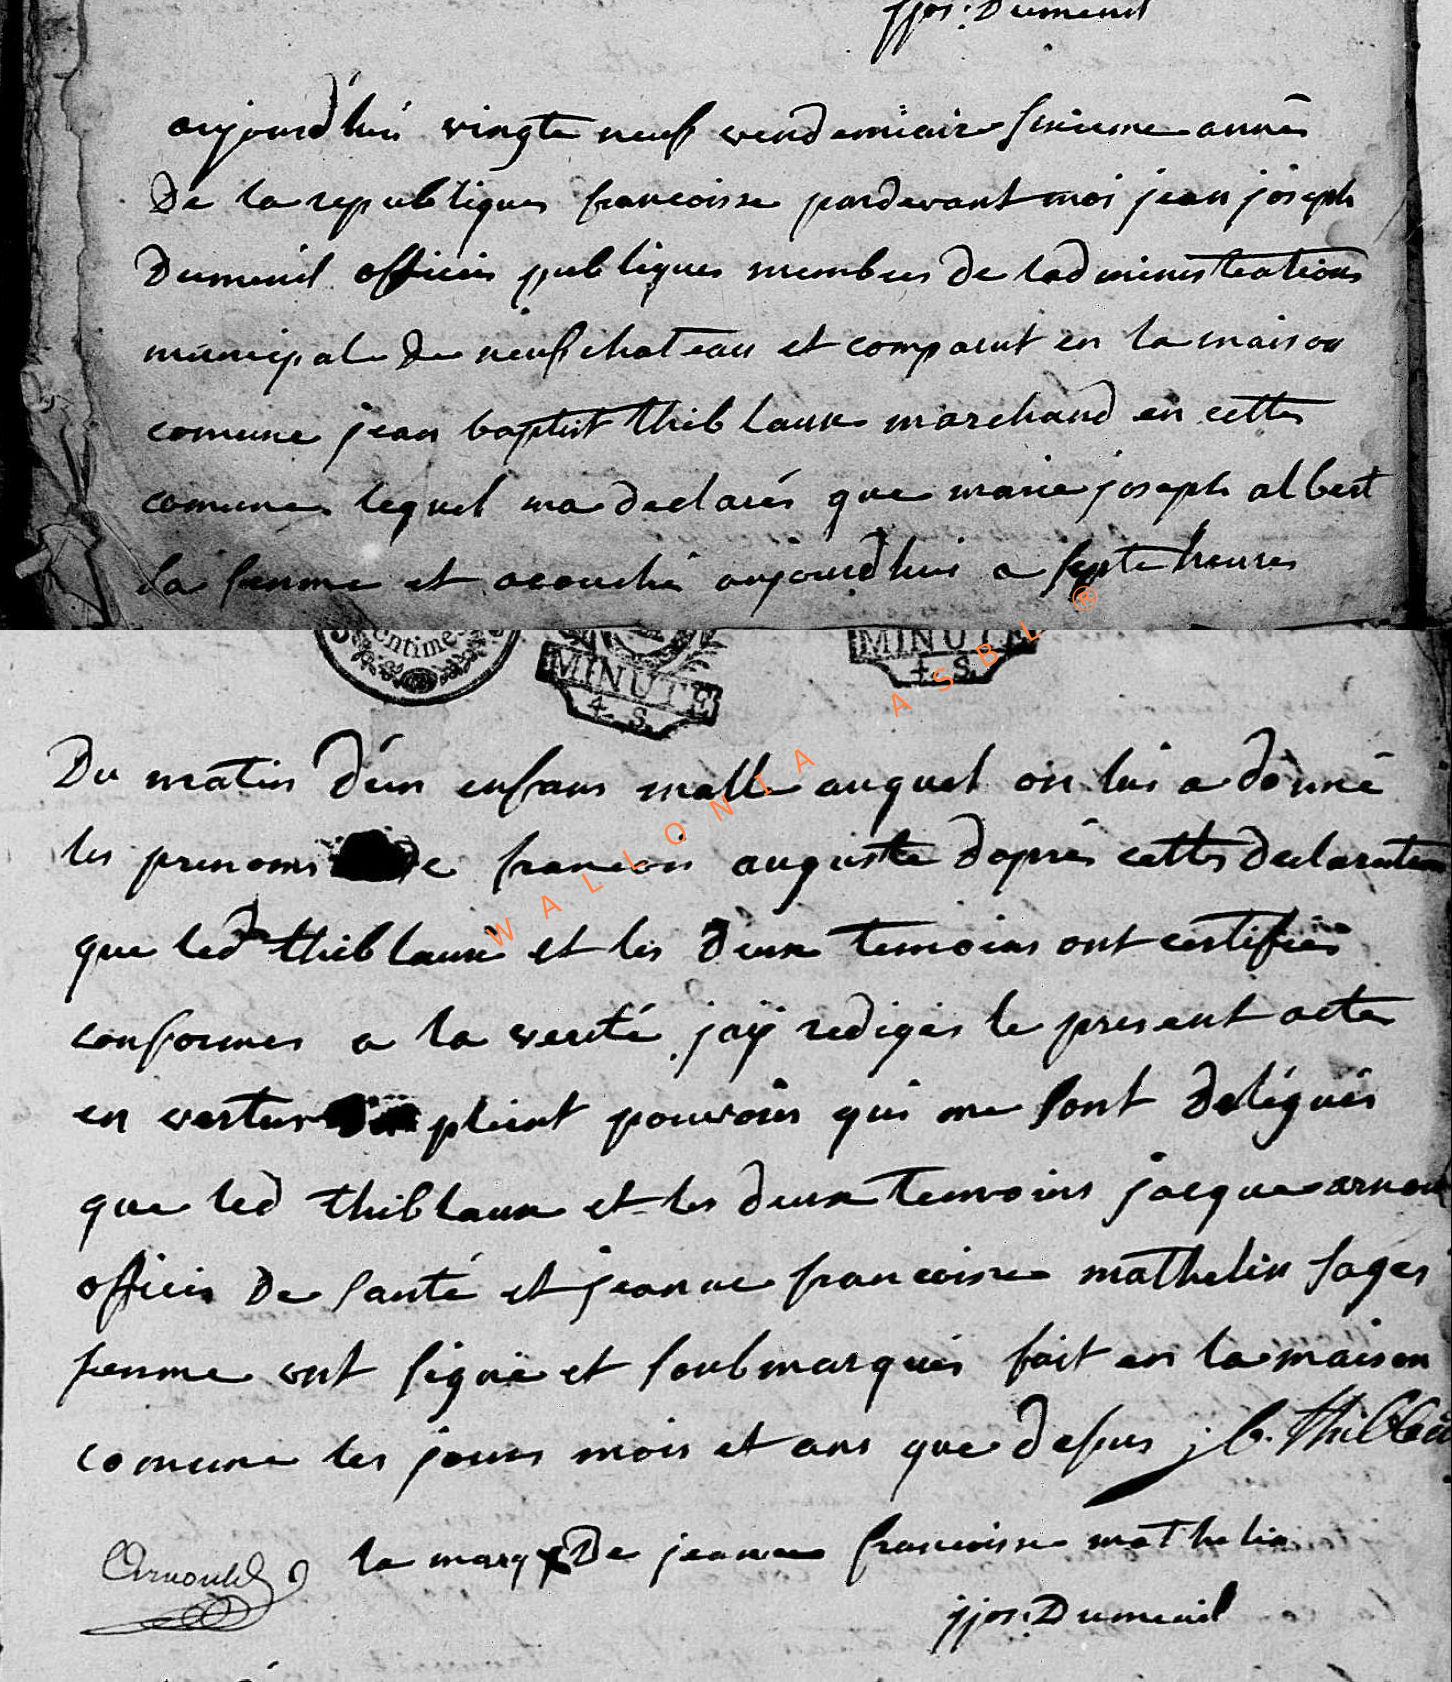 jjos: Dumenil
aujourdhui vingte neuf vendemiaire sixieme anné
De la republiques francoisse pardevant moi jean joseph
Dumenil officier publiques membres de ladministrations
municipale De neufchateau et comparut en la maison
comune jean baptist thiblaux marchand en cettes
comunes lequel ma declarés que marie joseph albert
sa femme et acouché aujourdhui a septe heures
centimes
MINUTE
4. S.
MINUTE
4. S.
Du matin d'un enfans malle auquel on lui a donné
les prenoms de francois auguste daprés cettes declaration
que led thiblaux et les deux temoins ont certifiés
conformes a la verité jaÿ redigés le present actes
en vertus pleint pouvoirs qui me sont delégués
que led thiblaux et les deux temoins jacque arnou
officier De santé et jeanne francoisse mathelin sages
femme ont signé et soubmarqués fait en la maison
comune les jours mois et ans que desus j b. thiblau
Arnould la marq x De jeanne francoisse mathelin
jjos: Dumenil
WALLONIA ASBL ®